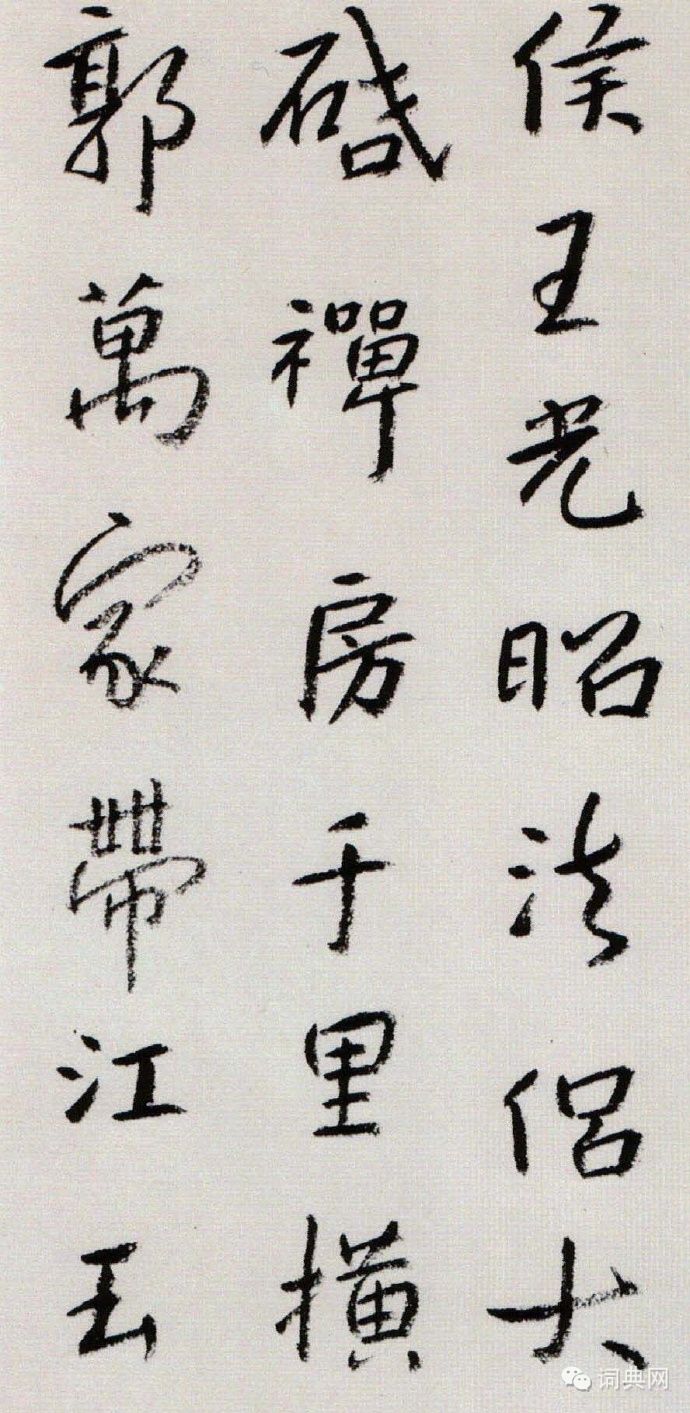 侯王光昭法侣大
啟禪房千里橫
郭萬家帶江玉
词典网